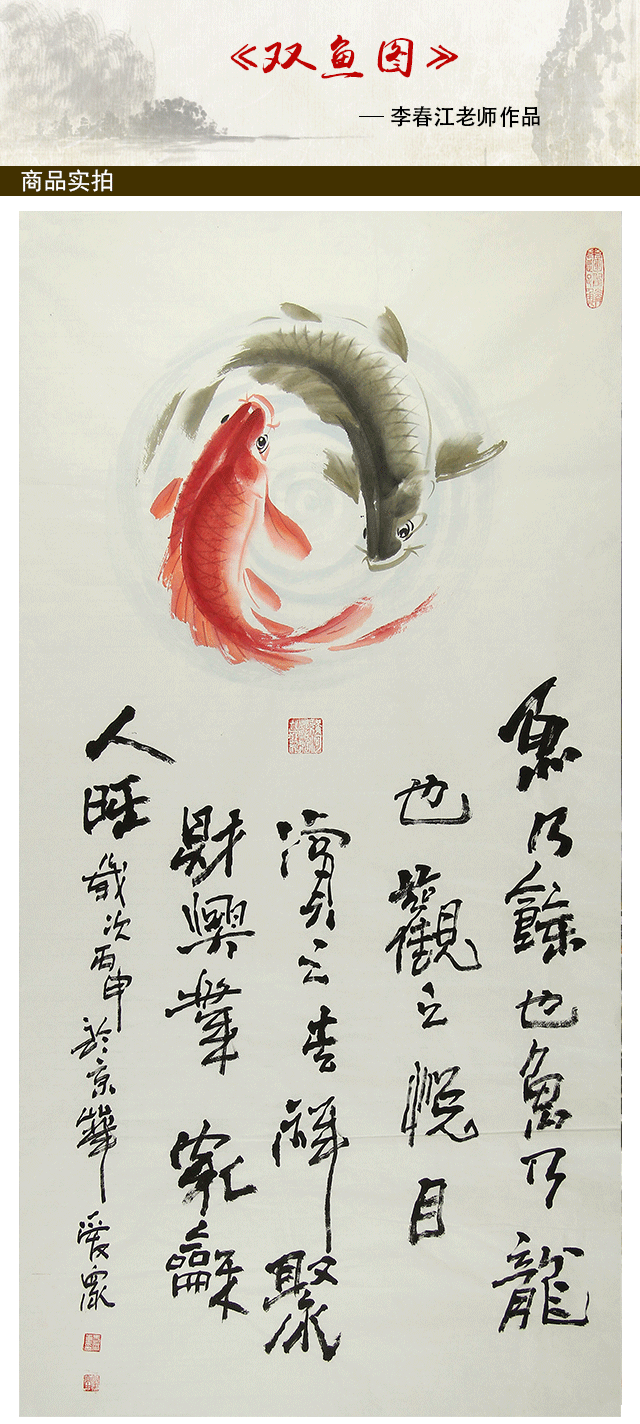 《双鱼图》
— 李春江老师作品
商品实拍
魚乃餘也魚乃龍
也觀之悦目
賞之吉祥聚
財興業家龢
人旺歲次丙申於京華